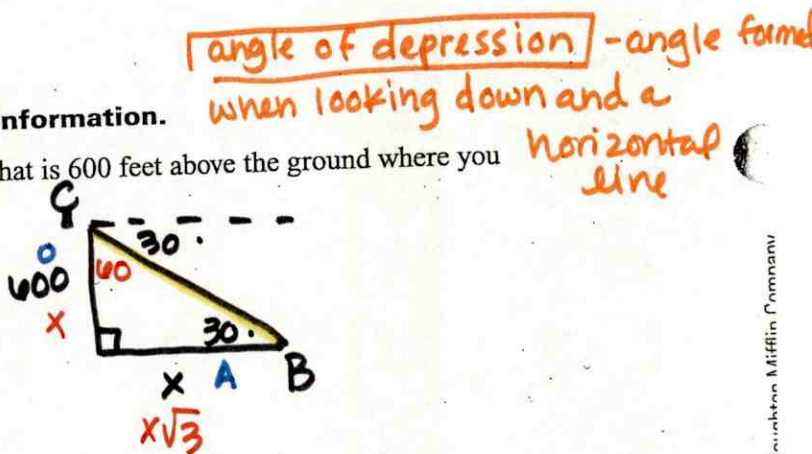 angle of depression - angle formed
when looking down and a
horizontal
line
nformation.
hat is 600 feet above the ground where you
G
30
O
600
60
x
30
x A B
x√3
oughton Mifflin Company